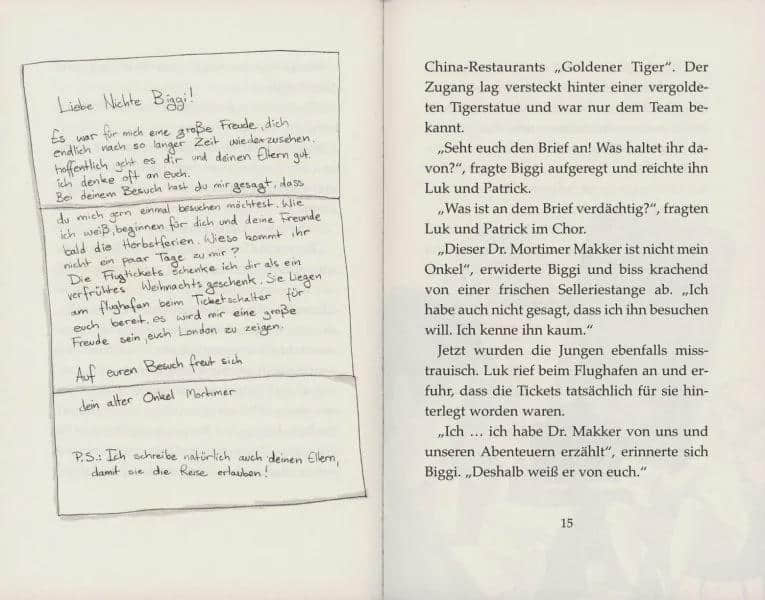 Liebe Nichte Biggi!
Es war für mich eine große Freude, dich
endlich nach so langer Zeit wiederzusehen.
hoffentlich geht es dir und deinen Eltern gut.
ich denke oft an euch.
Bei deinem Besuch hast du mir gesagt, dass
du mich gern einmal besuchen möchtest. Wie
ich weiß, beginnen für dich und deine Freunde
bald die Herbstferien. Wieso kommt ihr
nicht ein paar Tage zu mir?
Die Flugtickets schenke ich dir als ein
verfrühtes Weihnachtsgeschenk. Sie liegen
am flughafen beim Ticketschalter für
euch bereit. es wird mir eine große
Freude sein, euch London zu zeigen.
Auf euren Besuch freut sich
dein alter Onkel Mortimer
P.S.: Ich schreibe natürlich auch deinen Eltern,
damit sie die Reise erlauben!
China-Restaurants „Goldener Tiger“. Der
Zugang lag versteckt hinter einer vergolde-
ten Tigerstatue und war nur dem Team be-
kannt.
„Seht euch den Brief an! Was haltet ihr da-
von?“, fragte Biggi aufgeregt und reichte ihn
Luk und Patrick.
„Was ist an dem Brief verdächtig?“, fragten
Luk und Patrick im Chor.
„Dieser Dr. Mortimer Makker ist nicht mein
Onkel“, erwiderte Biggi und biss krachend
von einer frischen Selleriestange ab. „Ich
habe auch nicht gesagt, dass ich ihn besuchen
will. Ich kenne ihn kaum.“
Jetzt wurden die Jungen ebenfalls miss-
trauisch. Luk rief beim Flughafen an und er-
fuhr, dass die Tickets tatsächlich für sie hin-
terlegt worden waren.
„Ich … ich habe Dr. Makker von uns und
unseren Abenteuern erzählt“, erinnerte sich
Biggi. „Deshalb weiß er von euch.“
15